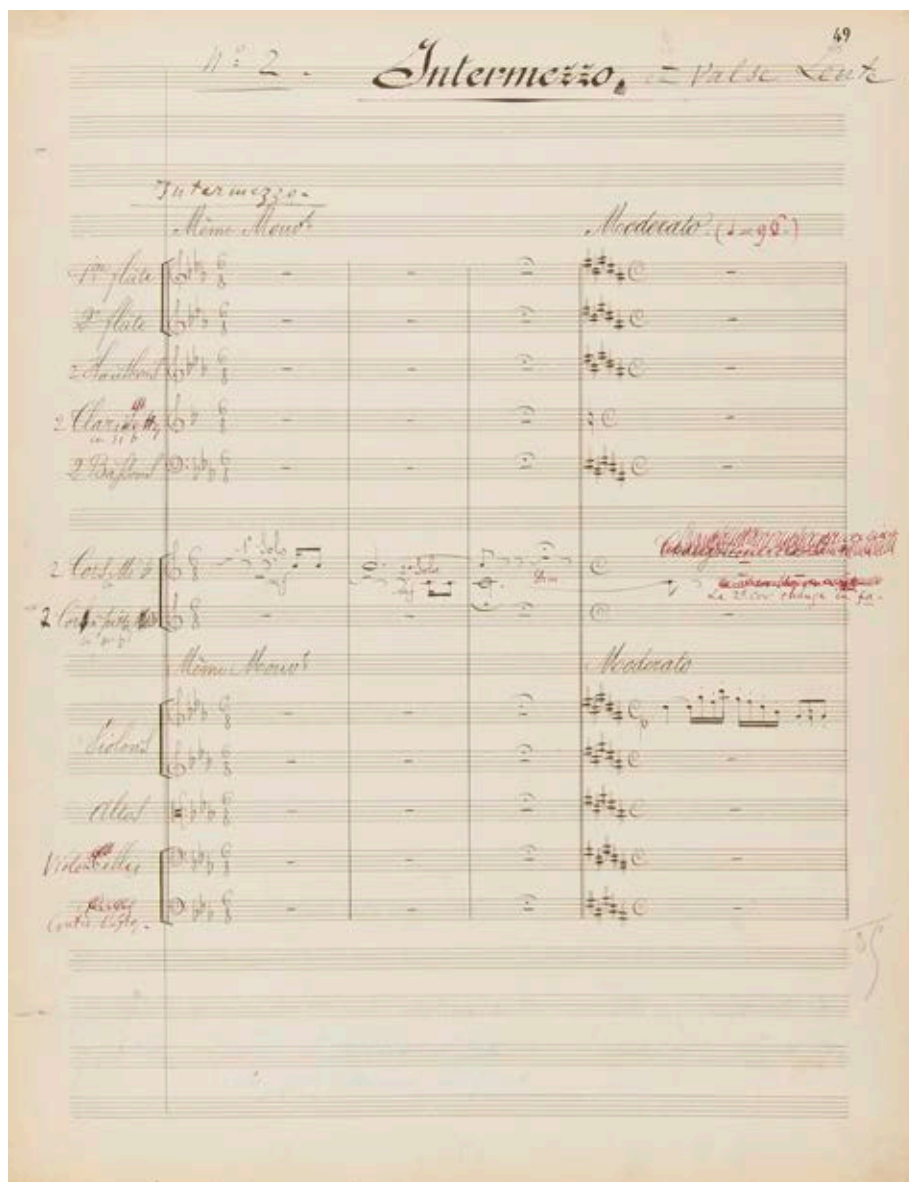 49
Nº 2. Intermezzo. et Valse Lente
Intermezzo.
Même Mouvt Moderato. (♩=
1ère flûte
2e flûte
2 Hautbois
2 Clarinettes
en si b
2 Bassons
1º Solo
2 Cors Mi b
2º Solo
dim
La 2e cor change en fa.
2
Même Mouvt Moderato
p
Violons
Altos
Violoncelles
Contre Basses.